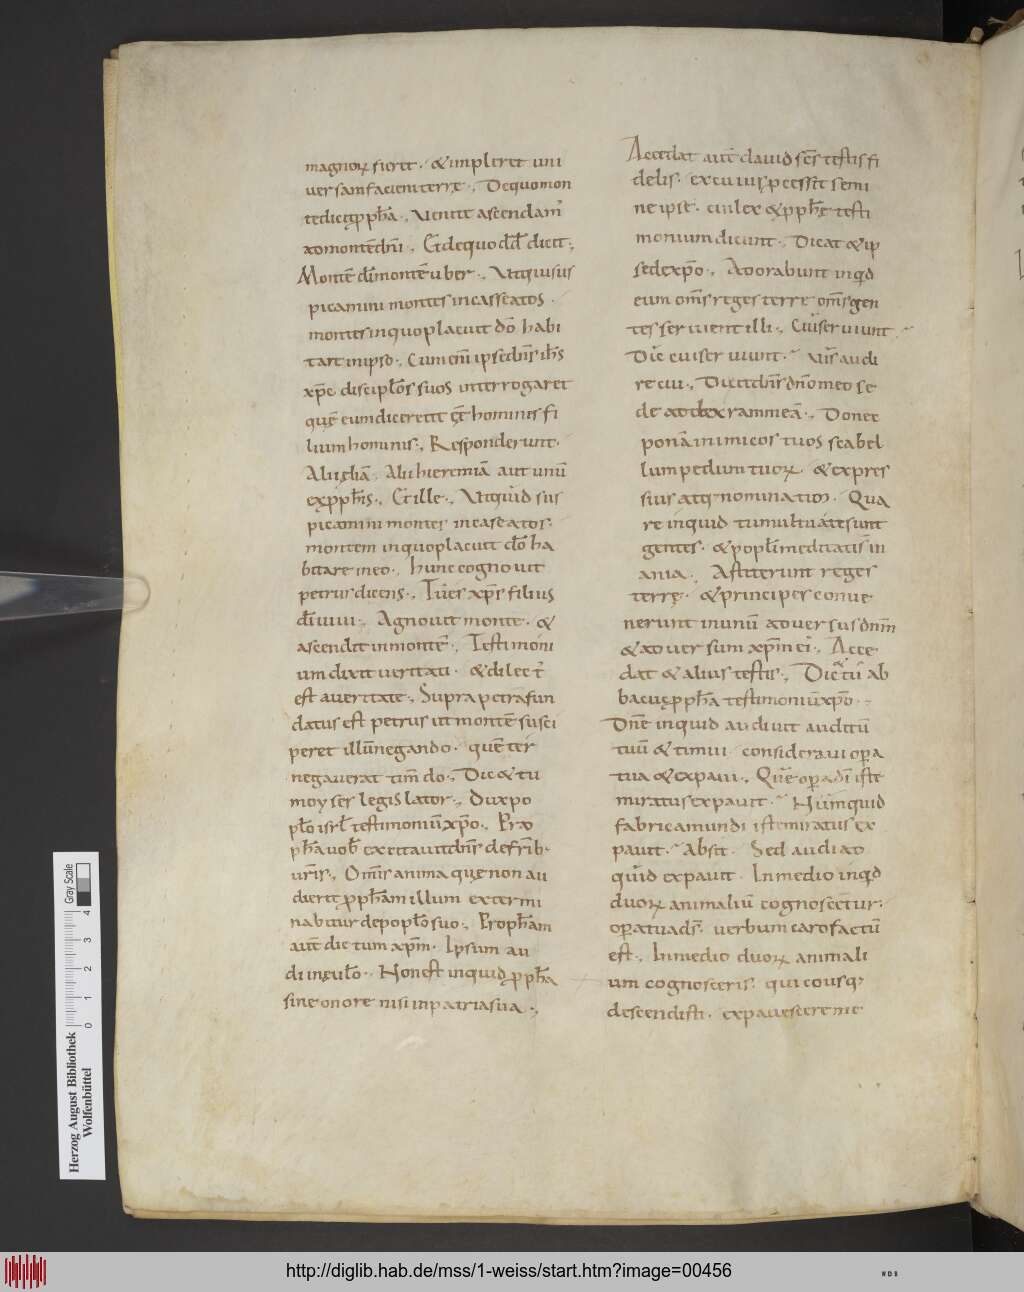 magnoꝝ fieret · & impleret uni
uersam faciem terrę ., De quo mon
te dic& ꝓph̄a ., Uenite ascendam᷒
ad montē dn̄i ., Et de quo dd̄ dicit .,
Montē dī montē uber ., Utquid sus
picamini montes incaseatos ·
montes in quo placuit dō habi
tare in ipso ., Cum enī ipse dn̄s ih̄s
xp̄c discipl̄os suos interrogaret
quē eum dicerent ēē homines fi
lium hominis ., Responderunt ·
Alii eliā · Alii hieremiā aut unū
ex ꝓph̄is ., Et ille ., Utquid sus
picamini montes incaseatos ·
montem in quo placuit dō ha
bitare in eo ., hunc cognouit
petrus dicens ., Tu es xp̄s filius
dī uiui ., Agnouit monte · &
ascendit in montē ., Testimoni
um dixit ueritati · & dilect᷒
est a ueritate ., Supra petra fun
datus est petrus ut montē susci
peret illū negando · quē ter
negauerat timēdo ., Dic & tu
moyses legislator ., dux po
pl̄o isrl̄ testimoniū xp̄o ., Pro
ph̄ā uob̄ excitauit dn̄s de fr̄ib·
ur̄is ., Om̄is anima quę non au
dierit ꝓph̄am illum extermi
nabitur de popl̄o suo ., Proph̄am
aut̄ dictum xp̄m · Ipsum au
di in euglo · Non est inquid ꝓph̄a
sine onore nisi in patria sua .,
Accedat aut̄ dauid sc̄s testis fi
delis · ex cuius ꝓcessit semi
ne ipse · cui lex & ꝓph̄ę testi
monium dicunt · Dicat & ip
se de xp̄o ., Adorabunt inqd
eum om̄s reges terre om̄s gen
tes seruient illi ., Cui seruiunt
Dic cui seruiunt · uis audi
re cui ., Dicit dn̄s dn̄o meo se
de ad dexteram meā ., Donec
ponā inimicos tuos scabel
lum pedum tuoꝝ · & expres
sius atq; nominatim · Qua
re inquid tumultuate sunt
gentes · & popl̄i meditati s̄ in
ania · Astiterunt reges
terrę · & principes conue
nerunt in unū aduersus dn̄m
& aduersum xp̄m ei᷒ ., Acce
dat & alius testis ., Dic & tu ab
bacuc ꝓph̄a testimoniū xp̄o ·
Dn̄e inquid audiui auditū
tuū & timui consideraui opa
tua & expaui ., Quę opa dī iste
miratus expauit · Numquid
fabrica mundi iste miratus ex
pauit · Absit · Sed audi ad
quid expauit · In medio inqd
duoꝝ animaliū cognosceēris ·
opa tua ds̄ · uerbum caro factū
est ., In medio duoꝝ animali
um cognosceris · qui eousq;
descendisti · expauescere me
Herzog August Bibliothek
Wolfenbüttel
0 1 2 3 4
Gray Scale
http://diglib.hab.de/mss/1-weiss/start.htm?image=00456